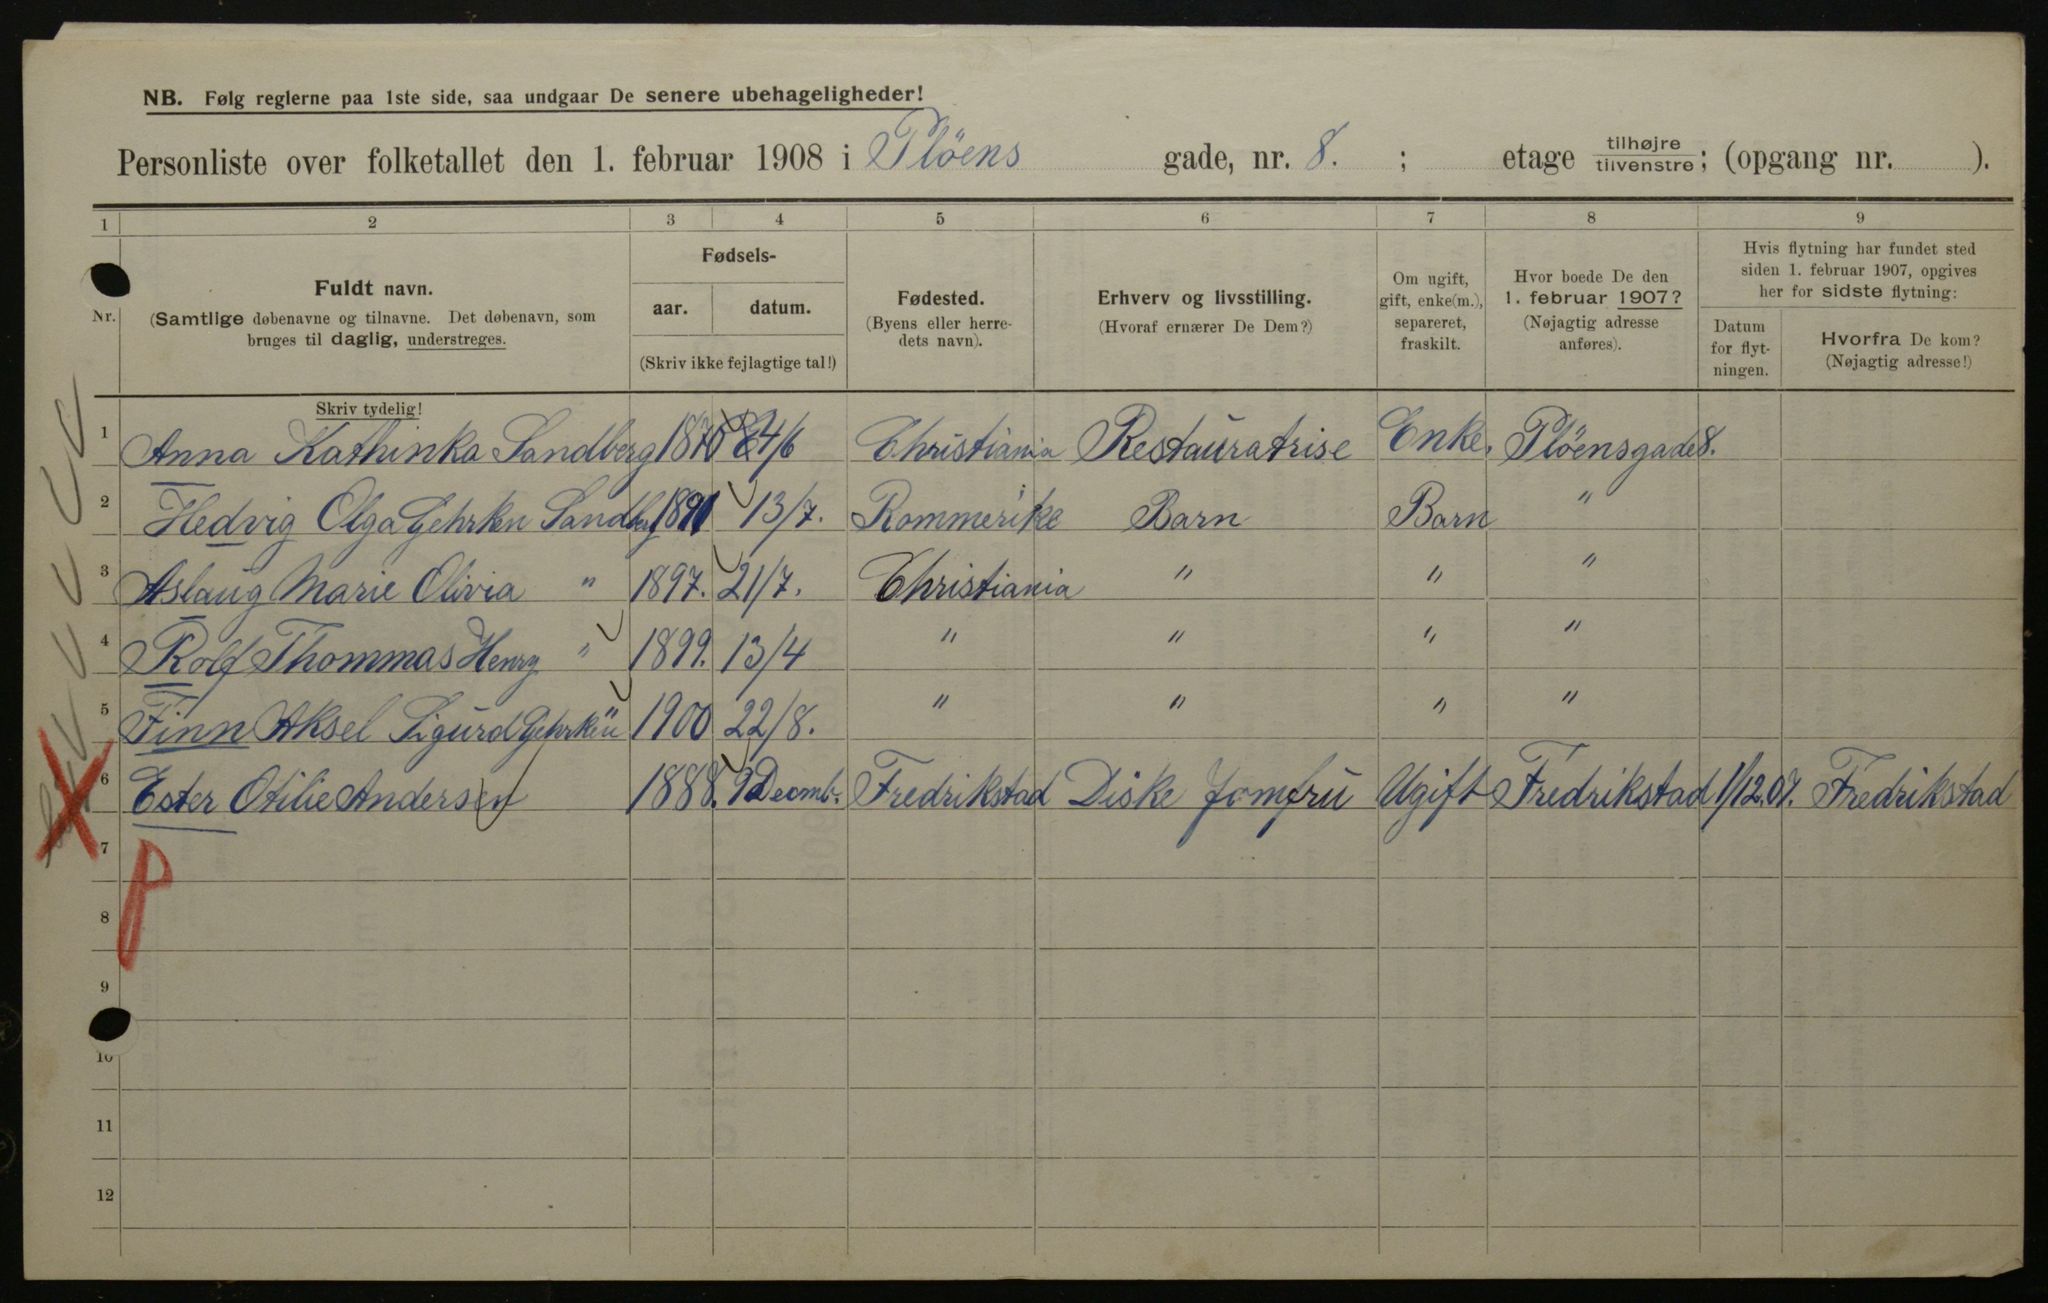 NB. Følg reglerne paa 1ste side, saa undgaar De senere ubehageligheder!
Personliste over folketallet den 1. februar 1908 i Plöens gade, nr. 8. ; etage tilhøjre tilvenstre; (opgang nr. ).
1 2 3 4 5 6 7 8 9
Nr. Fuldt navn. (Samtlige døbenavne og tilnavne. Det døbenavn, som bruges til daglig, understreges.
Fødsels- aar. datum. (Skriv ikke fejlagtige tal!)
Fødested. (Byens eller herredets navn).
Erhverv og livsstilling. (Hvoraf ernærer De Dem?)
Om ugift, gift, enke(m.), separeret, fraskilt.
Hvor boede De den 1. februar 1907? (Nøjagtig adresse anføres).
Hvis flytning har fundet sted siden 1. februar 1907, opgives her for sidste flytning:
Datum for flytningen. Hvorfra De kom? (Nøjagtig adresse!)
Skriv tydelig!
1 Anna Kathinka Sandberg 1870 24/6 Christiania Restauratrise Enke. Plöensgade 8.
2 Hedvig Olga Gehrken Sandberg 1891 13/7. Rommerike Barn Barn "
3 Aslaug Marie Olivia " 1897. 21/7. Christiania " " "
4 Rolf Thommas Henry " 1899. 13/4 " " " "
5 Finn Aksel Sigurd Gehrken " 1900 22/8. " " " "
6 Ester Otilie Andersen 1888. Decmb. Fredrikstad Diske Jomfru Ugift Fredrikstad 1/12.07. Fredrikstad
7
P
8
9
10
11
12